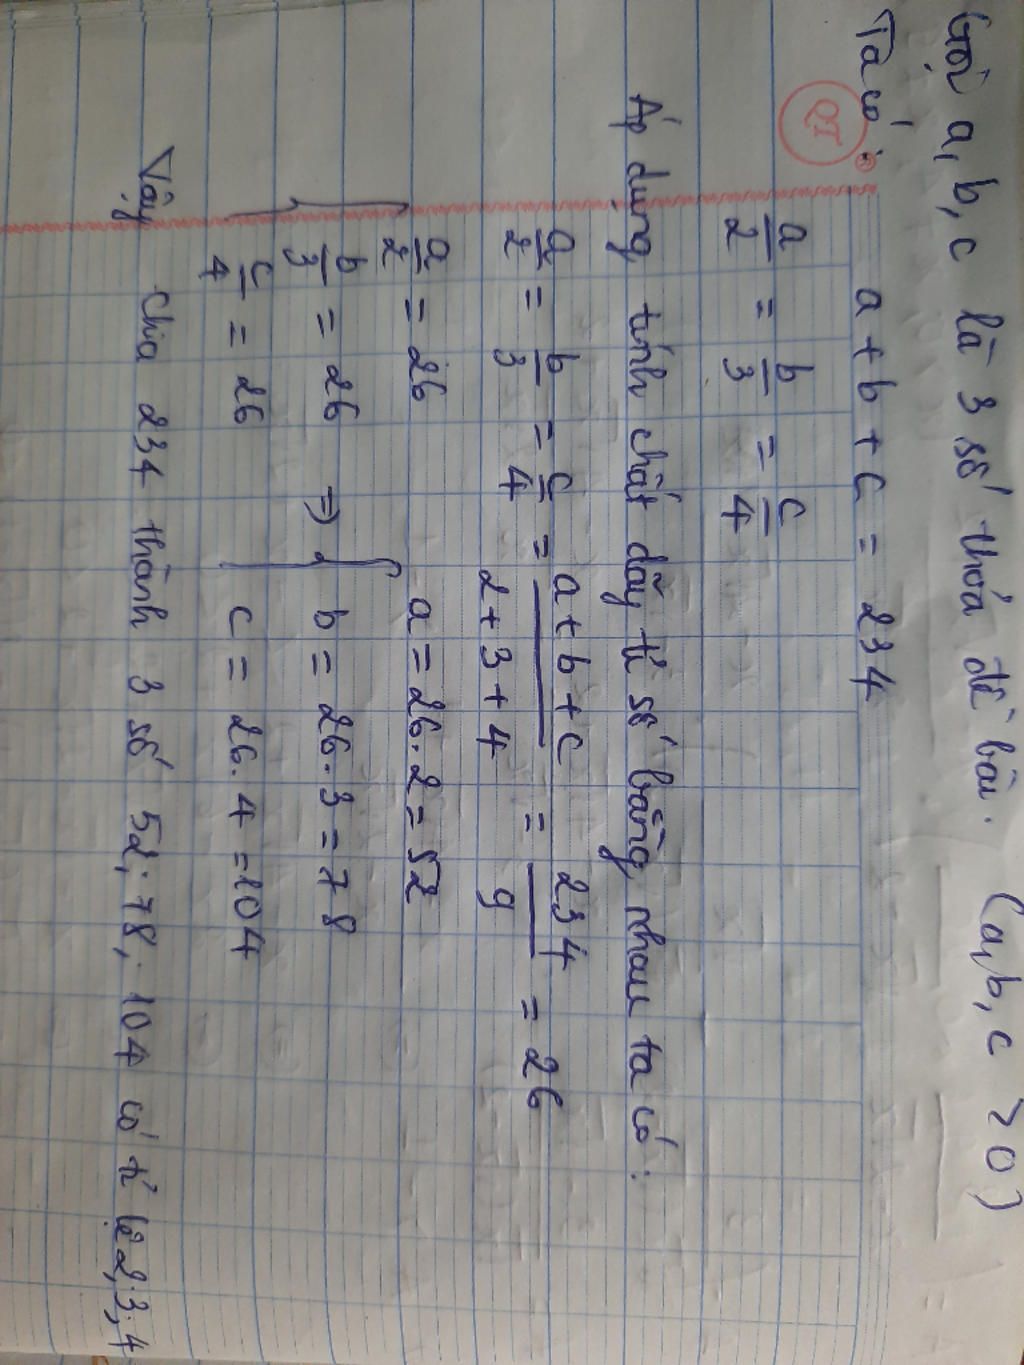 Gọi a, b, c là 3 số thỏa đề bài. (a, b, c > 0)
Ta có: a + b + c = 234
QT
a/2 = b/3 = c/4
Áp dụng tính chất dãy tỉ số bằng nhau ta có:
a/2 = b/3 = c/4 = (a + b + c)/(2 + 3 + 4) = 234/9 = 26
{ a/2 = 26
b/3 = 26
c/4 = 26
⇒ { a = 26.2 = 52
b = 26.3 = 78
c = 26.4 = 104
Vậy chia 234 thành 3 số 52; 78; 104 có tỉ lệ 2, 3, 4